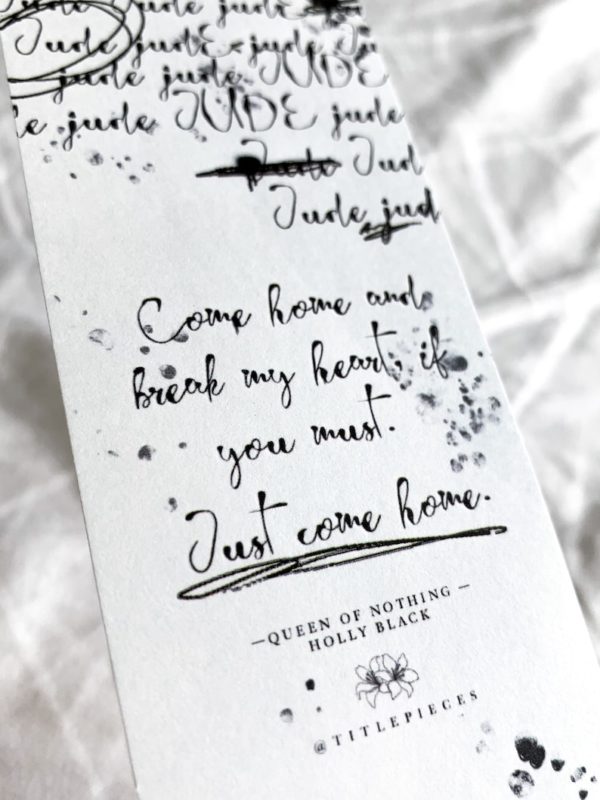 Jude Jude Jude
Jude judE - jude Ju
jude jude JUDE
jude JUDE jude
Jude Jud
Jude jud
Come home and
break my heart, if
you must.
Just come home.
—QUEEN OF NOTHING —
HOLLY BLACK
@TITLEPIECES